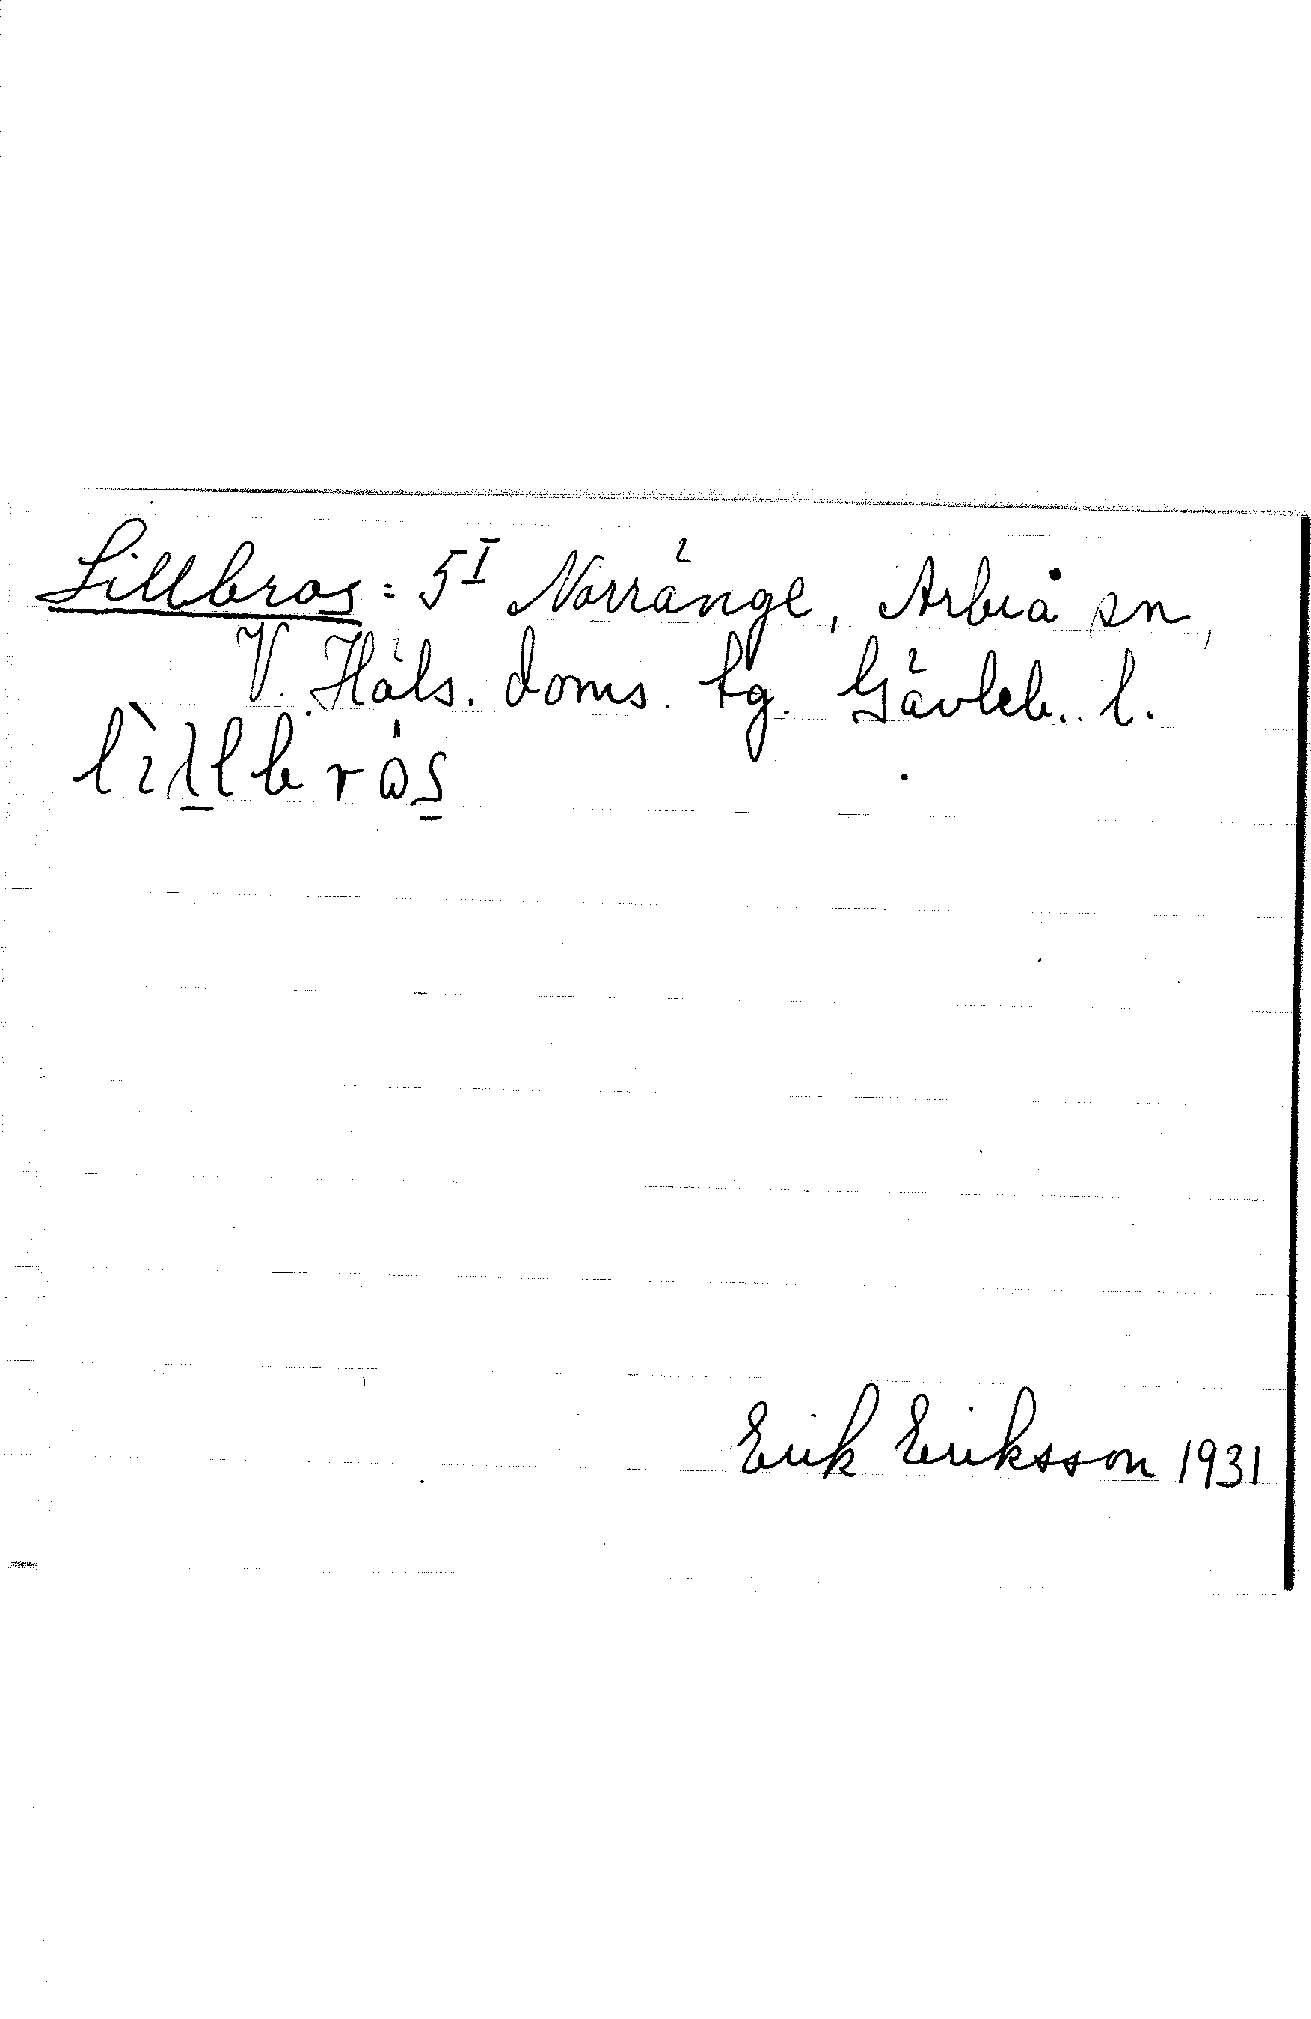 Lillbros = 5ᴵ Norränge, Arbrå sn,
V. Häls. doms. tg. Gävleb. l.
lìllbrós
Erik Eriksson 1931